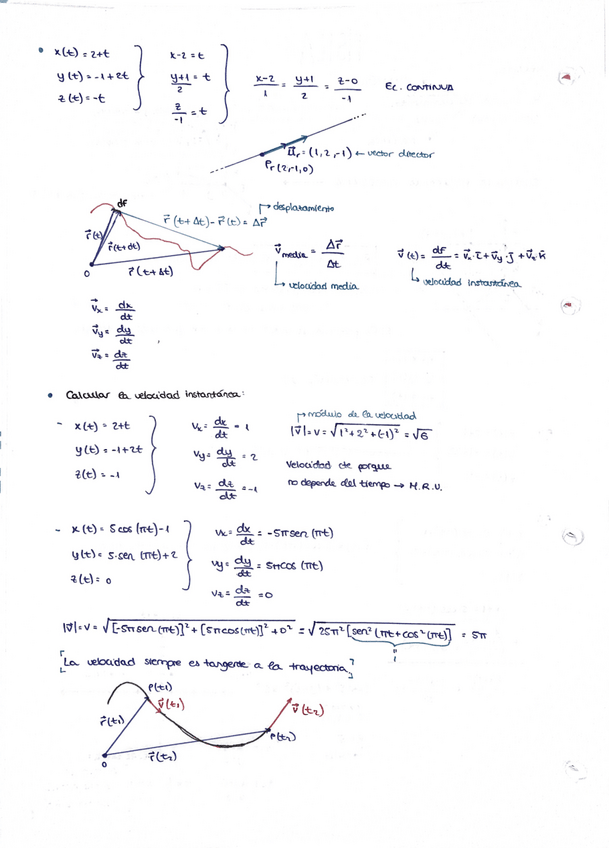 • x(t) = 2+t
y(t) = -1+2t
z(t) = -t
x-2 = t
y+1/2 = t
z/-1 = t
x-2/1 = y+1/2 = z-0/-1
EC. CONTINUA
u⃗r = (1,2,-1) ← vector director
Pr(2,-1,0)
df
r⃗(t+Δt) - r⃗(t) = Δr⃗
↱ desplazamiento
r⃗(t)
r⃗(t+dt)
r⃗(t+Δt)
0
V⃗media = Δr⃗/Δt
↳ velocidad media
V⃗(t) = df/dt = V⃗x·i + V⃗y·j + V⃗z·k
↳ velocidad instantánea
V⃗x = dx/dt
V⃗y = dy/dt
V⃗z = dz/dt
• Calcular la velocidad instantánea:
- x(t) = 2+t
y(t) = -1+2t
z(t) = -1
Vx = dx/dt = 1
Vy = dy/dt = 2
Vz = dz/dt = -1
↱ módulo de la velocidad
|V⃗| = V = √(1²+2²+(-1)²) = √6
Velocidad cte porque
no depende del tiempo → M.R.U.
- x(t) = 5cos(πt)-1
y(t) = 5·sen(πt)+2
z(t) = 0
Vx = dx/dt = -5πsen(πt)
Vy = dy/dt = 5πcos(πt)
Vz = dz/dt = 0
|V⃗| = V = √([-5πsen(πt)]² + [5πcos(πt)]² + 0²) = √(25π²[sen²(πt+cos²(πt)]) = 5π
1
[La velocidad siempre es tangente a la trayectoria]
P(t1)
V⃗(t1)
r⃗(t1)
V⃗(t2)
P(t2)
r⃗(t2)
0